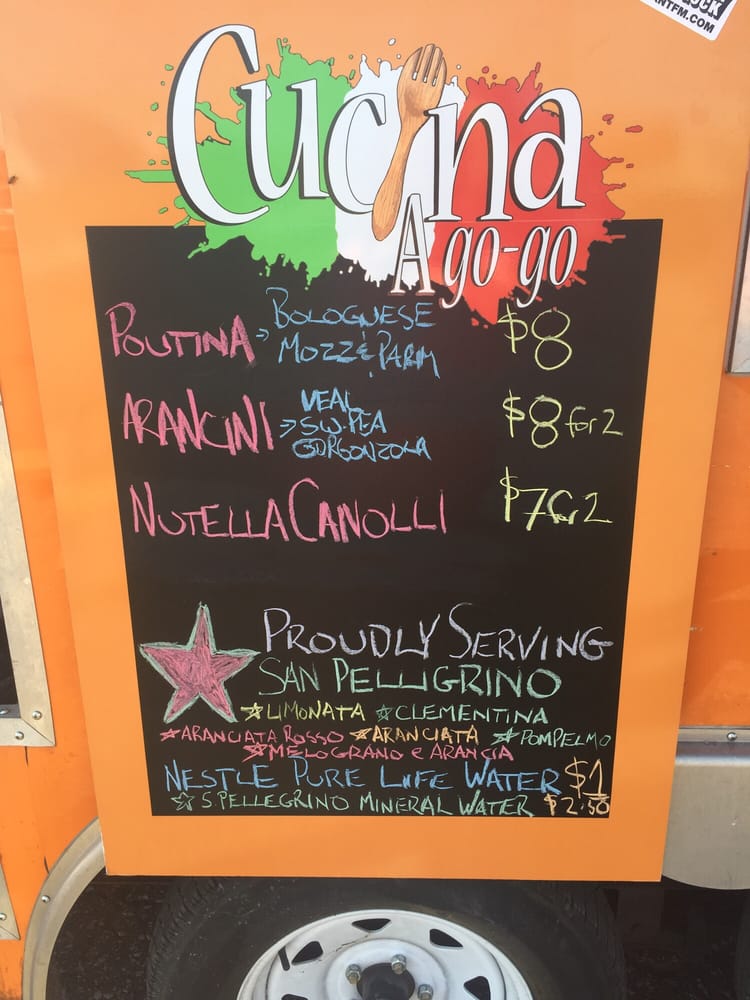 NTFM.COM
Cucina
A go-go
POUTINA → BOLOGNESE MOZZ & PARM $8
ARANCINI → VEAL SW.PEA GORGONZOLA $8 for 2
NUTELLA CANOLLI $7 for 2
PROUDLY SERVING
SAN PELLIGRINO
☆LIMONATA ☆CLEMENTINA
☆ARANCIATA ROSSO ☆ARANCIATA ☆POMPELMO
☆MELOGRANO e ARANCIA
NESTLE PURE LIFE WATER $1
☆S.PELLEGRINO MINERAL WATER $2.50